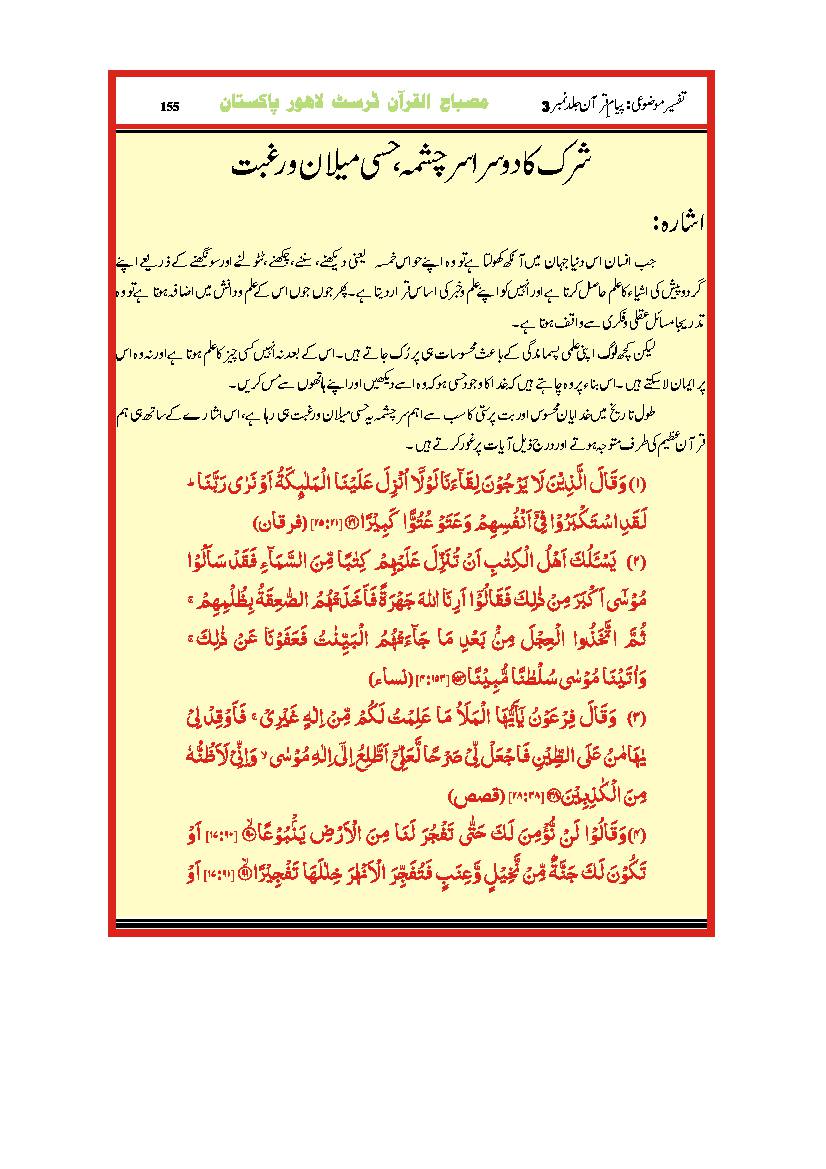 تفسیر موضوعی: پیام قرآن جلد نمبر 3 مصباح القرآن ٹرسٹ لاھور پاکستان 155
شرک کا دوسرا سرچشمہ، حسی میلان و رغبت
اشارہ:
جب انسان اس دنیا جہان میں آنکھ کھولتا ہے تو وہ اپنے حواس خمسہ یعنی دیکھنے، سننے، چکھنے، ٹٹولنے اور سونگھنے کے ذریعے اپنے
گردوپیش کی اشیاء کا علم حاصل کرتا ہے اور اُنہیں کو اپنے علم و خبر کی اساس قرار دیتا ہے۔ پھر جوں جوں اس کے علم و دانش میں اضافہ ہوتا ہے تو وہ
تدریجا مسائل عقلی و فکری سے واقف ہوتا ہے۔
لیکن کچھ لوگ اپنی علمی پسماندگی کے باعث محسوسات ہی پر رُک جاتے ہیں۔ اس کے بعد نہ اُنہیں کسی چیز کا علم ہوتا ہے اور نہ وہ اس
پر ایمان لا سکتے ہیں۔ اس بناء پر وہ چاہتے ہیں کہ خدا کا وجود حسی ہو کہ وہ اسے دیکھیں اور اپنے ہاتھوں سے مس کریں۔
طول تاریخ میں خدایان محسوس اور بت پرستی کا سب سے اہم سرچشمہ یہ حسی میلان و رغبت ہی رہا ہے، اس اشارے کے ساتھ ہی ہم
قرآن عظیم کی طرف متوجہ ہوتے اور درج ذیل آیات پر غور کرتے ہیں۔
(۱) وَقَالَ الَّذِيْنَ لَا يَرْجُوْنَ لِقَآءَنَا لَوْلَآ اُنْزِلَ عَلَيْنَا الْمَلٰٓىِٕكَةُ اَوْ نَرٰى رَبَّنَا ؕ
لَقَدِ اسْتَكْبَرُوْا فِيْٓ اَنْفُسِهِمْ وَعَتَوْ عُتُوًّا كَبِيْرًا۝۲۱ [۲۵:۲۱] (فرقان)
(۲) يَسْـَٔلُكَ اَهْلُ الْكِتٰبِ اَنْ تُنَزِّلَ عَلَيْهِمْ كِتٰبًا مِّنَ السَّمَآءِ فَقَدْ سَاَلُوْا
مُوْسٰٓى اَكْبَرَ مِنْ ذٰلِكَ فَقَالُوْٓا اَرِنَا اللهَ جَهْرَةً فَاَخَذَتْهُمُ الصّٰعِقَةُ بِظُلْمِهِمْ ۚ
ثُمَّ اتَّخَذُوا الْعِجْلَ مِنْۢ بَعْدِ مَا جَآءَتْهُمُ الْبَيِّنٰتُ فَعَفَوْنَا عَنْ ذٰلِكَ ۚ
وَاٰتَيْنَا مُوْسٰى سُلْطٰنًا مُّبِيْنًا۝۱۵۳ [۴:۱۵۳] (نساء)
(۳) وَقَالَ فِرْعَوْنُ يٰٓاَيُّهَا الْمَلَاُ مَا عَلِمْتُ لَكُمْ مِّنْ اِلٰهٍ غَيْرِيْ ۚ فَاَوْقِدْ لِيْ
يٰهَامٰنُ عَلَى الطِّيْنِ فَاجْعَلْ لِّيْ صَرْحًا لَّعَلِّيْٓ اَطَّلِعُ اِلٰٓى اِلٰهِ مُوْسٰى ۙ وَاِنِّيْ لَاَظُنُّهٗ
مِنَ الْكٰذِبِيْنَ۝۳۸ [۲۸:۳۸] (قصص)
(۴) وَقَالُوْا لَنْ نُّؤْمِنَ لَكَ حَتّٰى تَفْجُرَ لَنَا مِنَ الْاَرْضِ يَنْۢبُوْعًا۝۹۰ۙ [۱۷:۹۰] اَوْ
تَكُوْنَ لَكَ جَنَّةٌ مِّنْ نَّخِيْلٍ وَّعِنَبٍ فَتُفَجِّرَ الْاَنْهٰرَ خِلٰلَهَا تَفْجِيْرًا۝۹۱ۙ [۱۷:۹۱] اَوْ